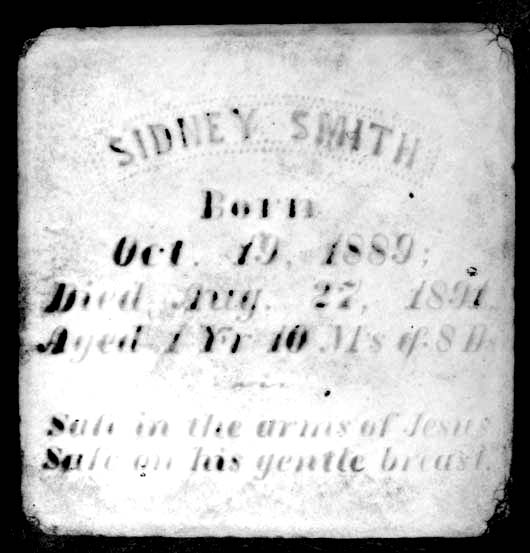 SIDNEY SMITH
Born
Oct. 19, 1889;
Died Aug. 27, 1891.
Aged 1 Yr 10 M's & 8 D's
Safe in the arms of Jesus
Safe on his gentle breast.